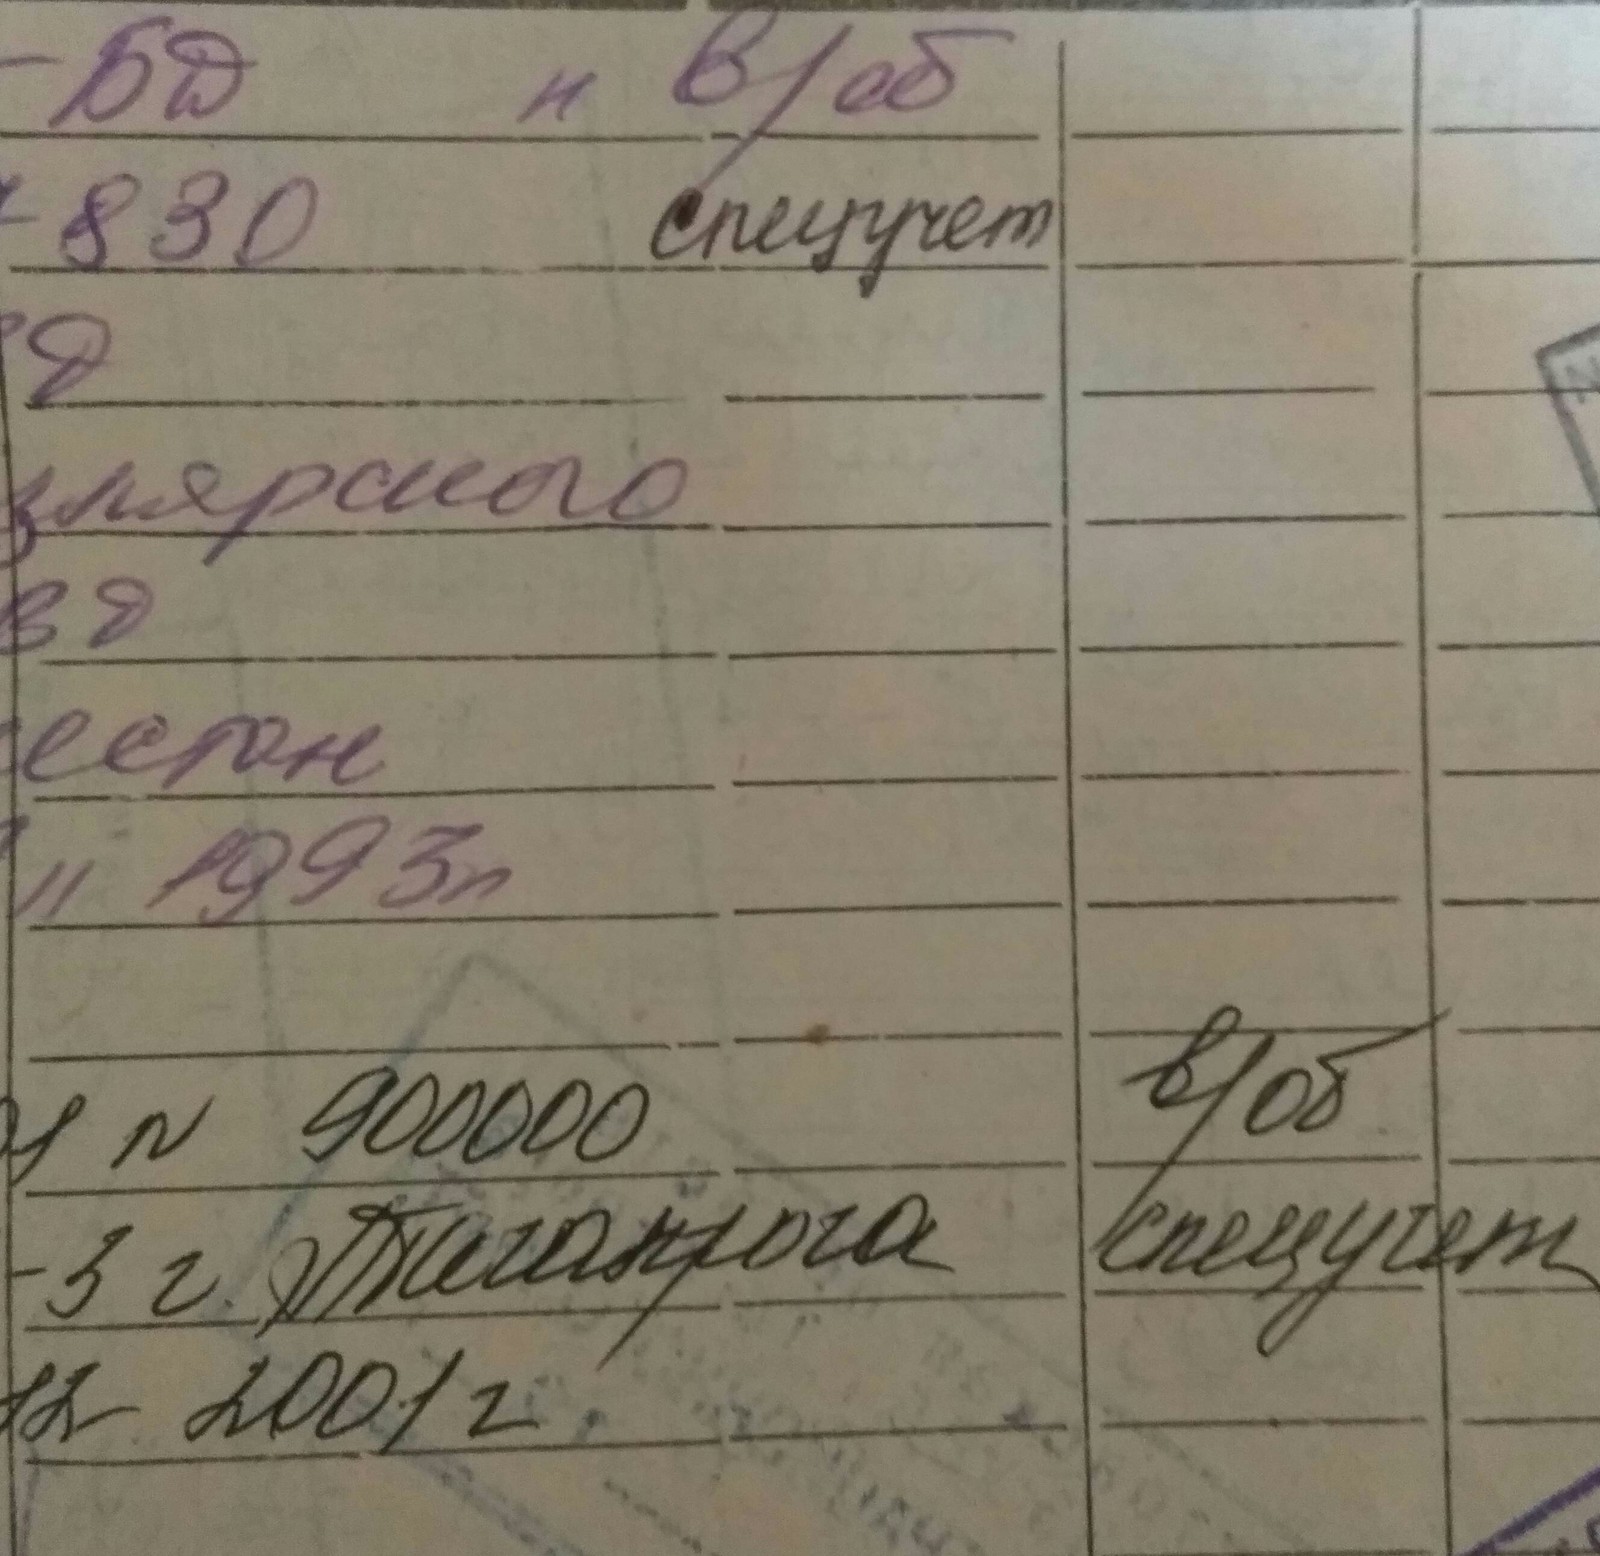 -БД н в/об
830 спецучет
вд
злярского
вд
естан
" 1993г
N 900000 в/об
-3 г. Таганрога спецучет
12 2001 г